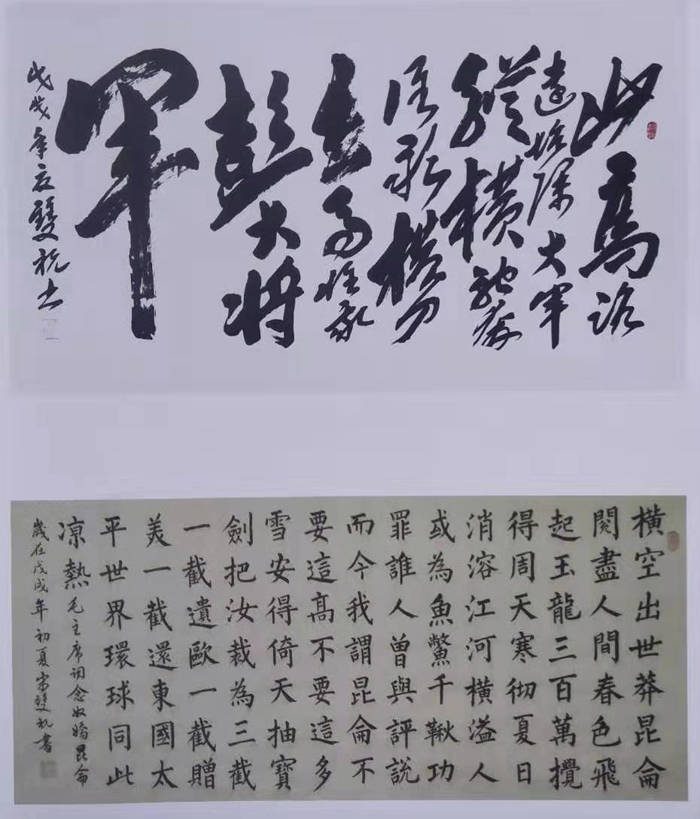 山高路
遠坑深大軍
縱橫馳奔
谁敢橫刀
立馬惟我
彭大将
軍
戊戌年夏雙杭书
橫空出世莽昆侖
閱盡人間春色飛
起玉龍三百萬攪
得周天寒彻夏日
消溶江河橫溢人
或為魚鱉千鞦功
罪誰人曾與評說
而今我謂昆侖不
要這髙不要這多
雪安得倚天抽寶
劍把汝裁為三截
一截遺歐一截贈
美一截還東國太
平世界環球同此
凉熱 毛主席词念奴嬌昆侖
歲在戊戌年初夏常雙杭書